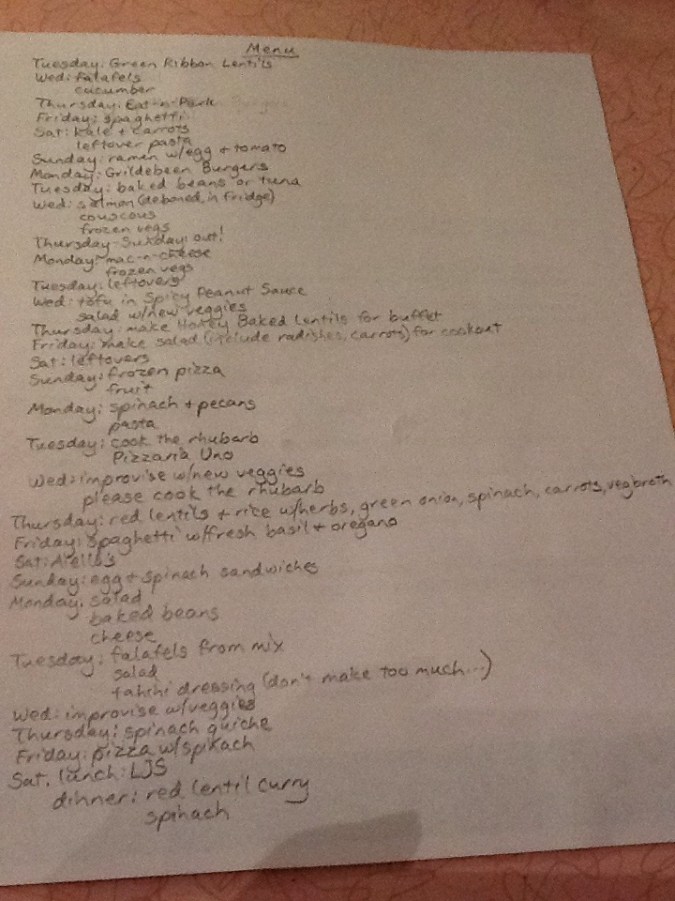 Menu
Tuesday: Green Ribbon Lentils
Wed: falafels
cucumber
Thursday: Eat-n-Park
Friday: spaghetti
Sat: kale + carrots
leftover pasta
Sunday: ramen w/egg + tomato
Monday: Grildebeen Burgers
Tuesday: baked beans or tuna
Wed: salmon (deboned, in fridge)
couscous
frozen vegs
Thursday-Sunday: out!
Monday: mac-n-cheese
frozen vegs
Tuesday: leftovers
Wed: tofu in Spicy Peanut Sauce
salad w/new veggies
Thursday: make Honey Baked Lentils for buffet
Friday: make salad (include radishes, carrots) for cookout
Sat: leftovers
Sunday: frozen pizza
fruit
Monday: spinach + pecans
pasta
Tuesday: cook the rhubarb
Pizzaria Uno
Wed: improvise w/new veggies
please cook the rhubarb
Thursday: red lentils + rice w/herbs, green onion, spinach, carrots, veg broth
Friday: spaghetti w/fresh basil + oregano
Sat: Aiello's
Sunday: egg + spinach sandwiches
Monday: salad
baked beans
cheese
Tuesday: falafels from mix
salad
tahini dressing (don't make too much...)
Wed: improvise w/veggies
Thursday: spinach quiche
Friday: pizza w/spinach
Sat. lunch: LJS
dinner: red lentil curry
spinach